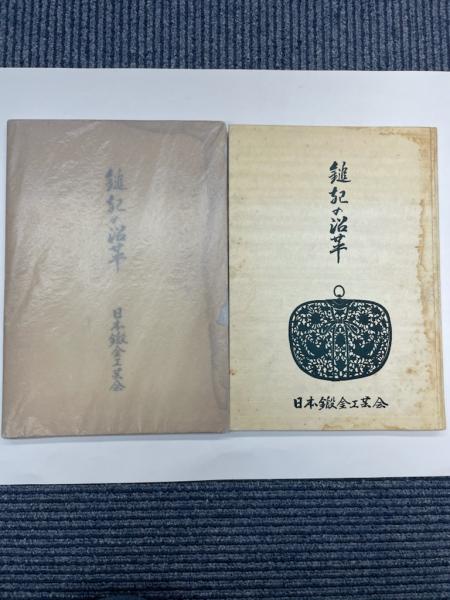 鎚起の沿革
日本鍛金工芸会
鎚起の沿革
日本鍛金工芸会